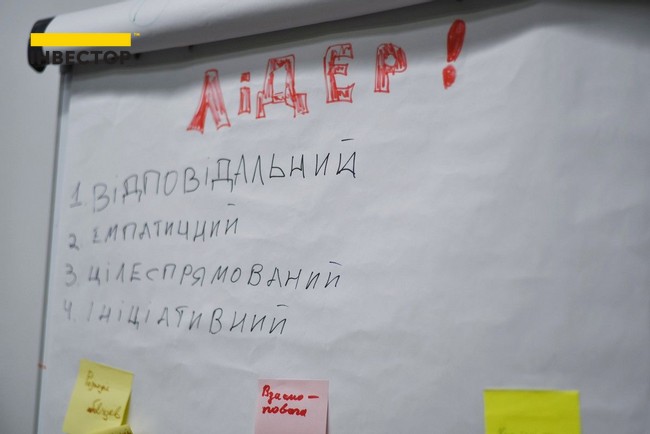 ІНВЕСТОР
ЛІДЕР!
1. ВІДПОВІДАЛЬНИЙ
2. ЕМПАТИЧНИЙ
3. ЦІЛЕСПРЯМОВАНИЙ
4. ІНІЦІАТИВНИЙ
Взаємо-
повага